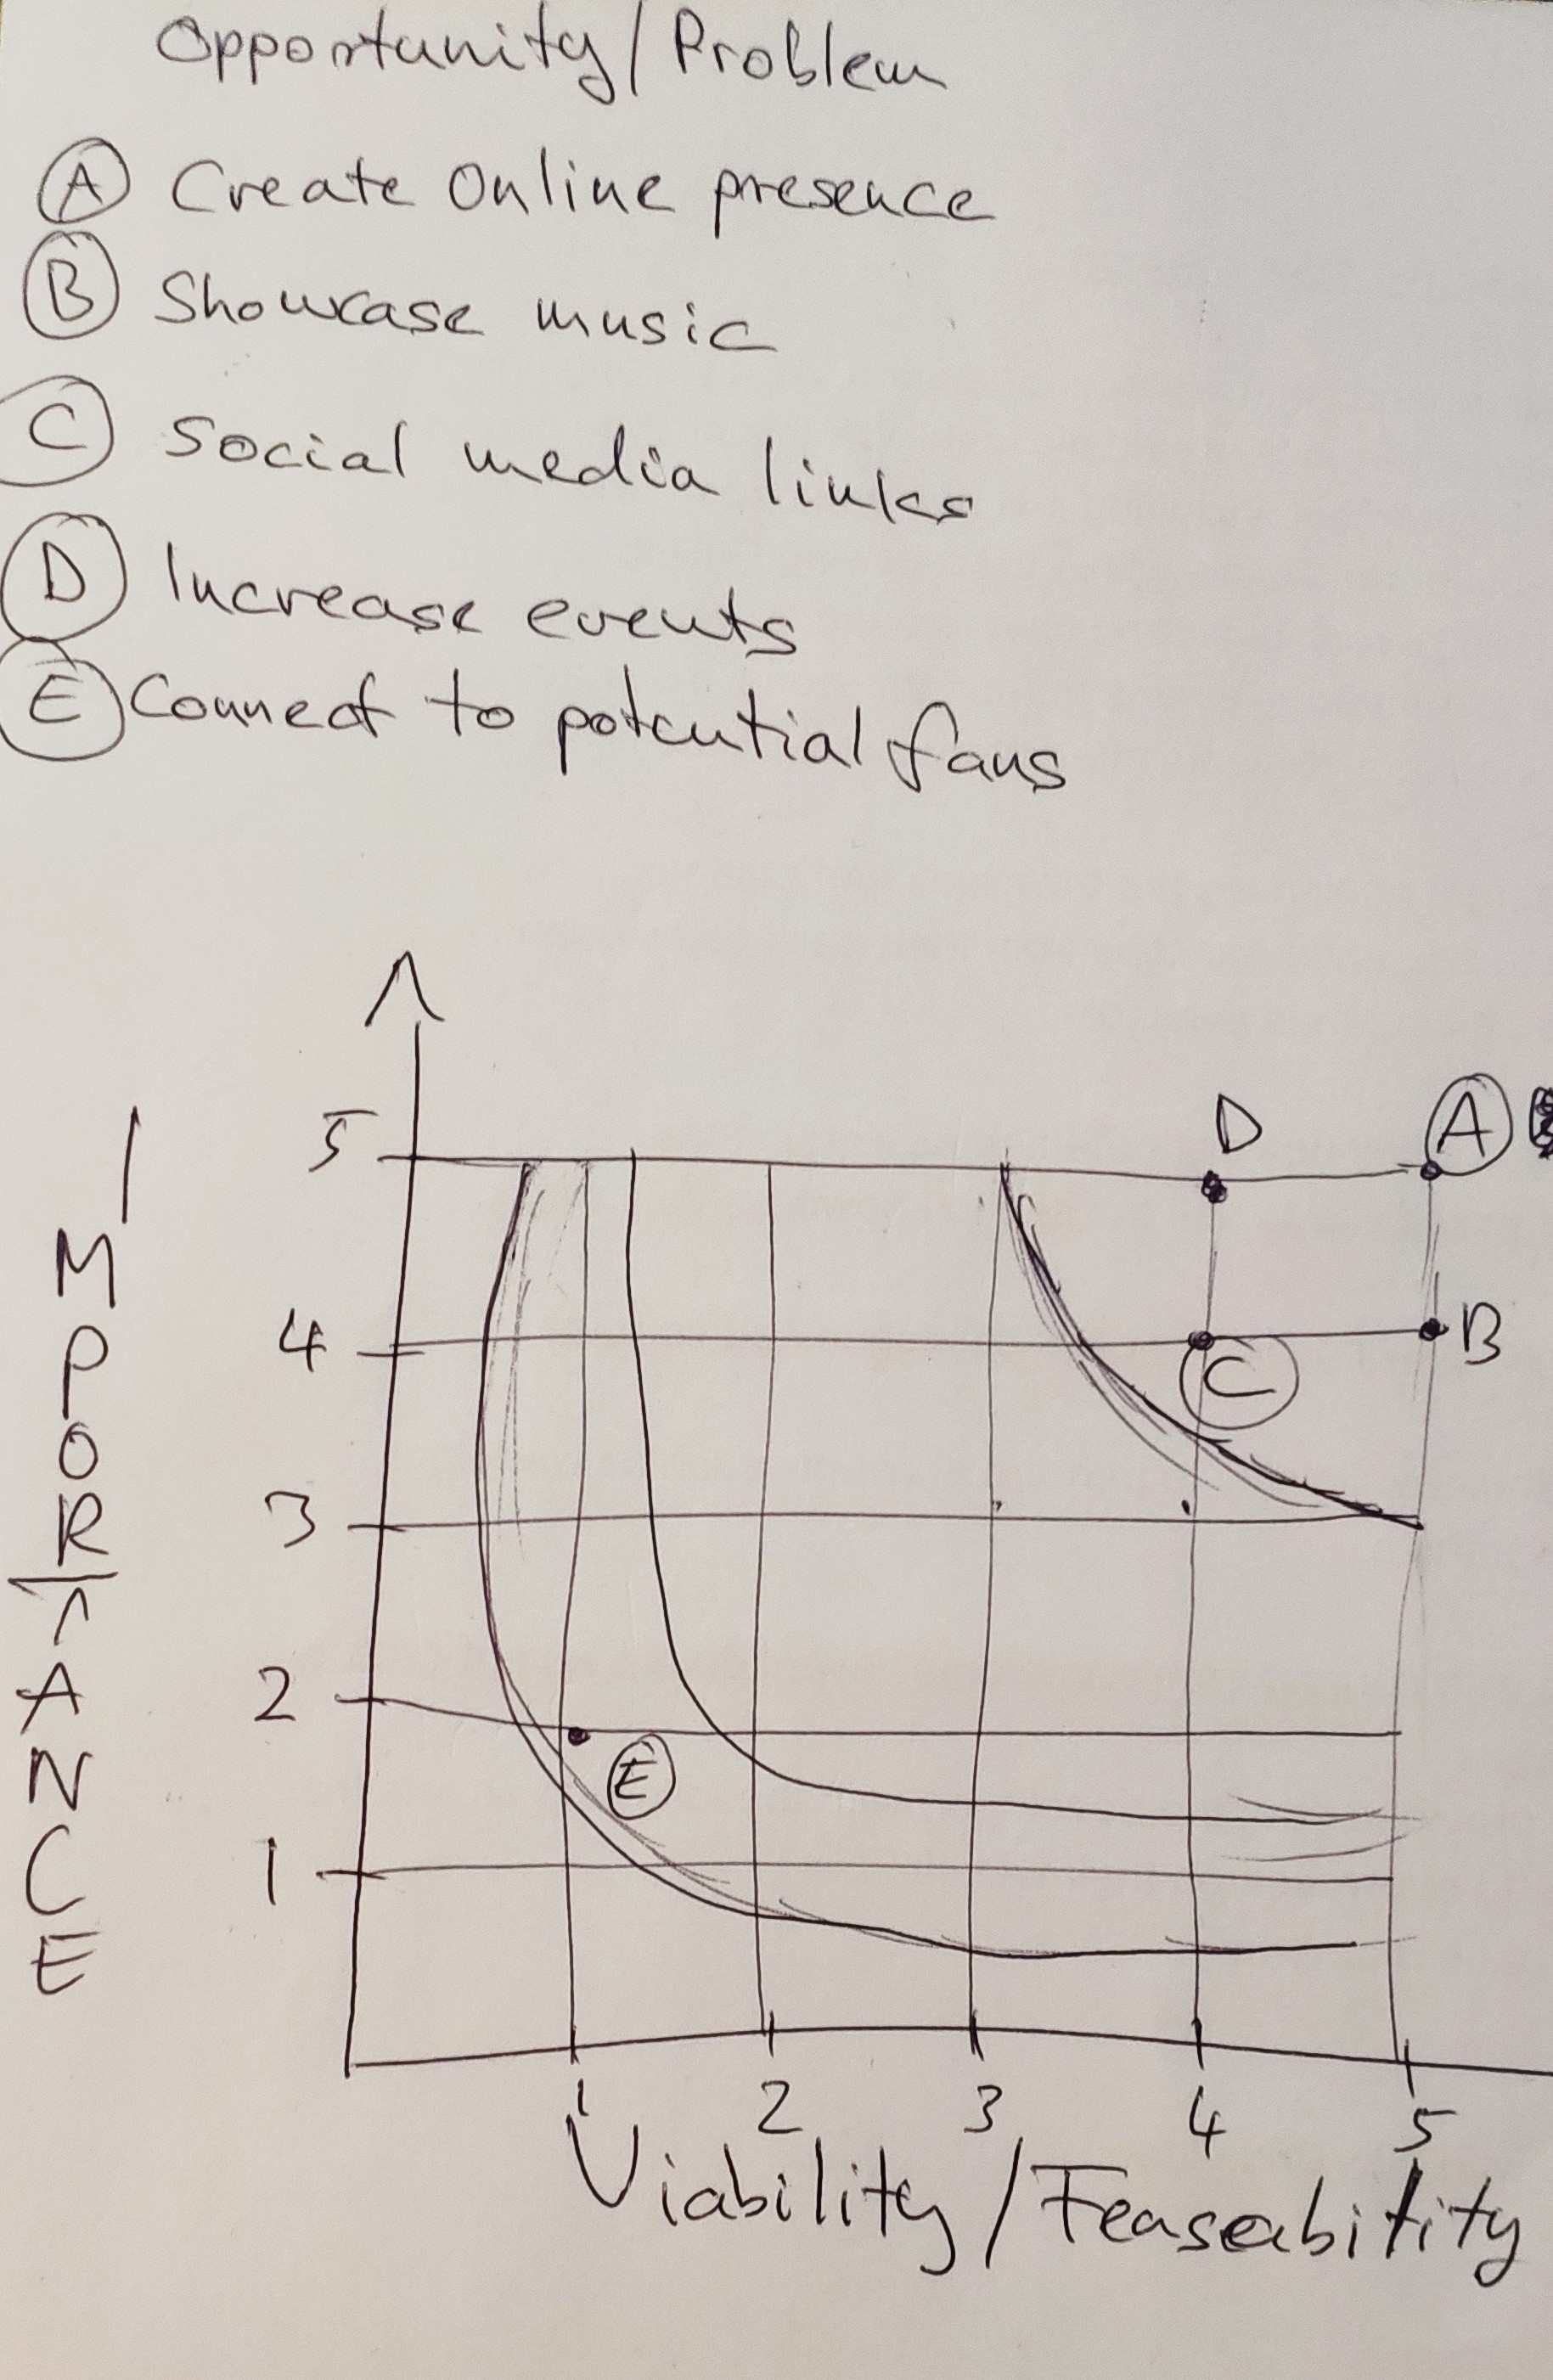 Opportunity/Problem
A Create Online presence
B Showcase music
C Social media links
D Increase events
E Connect to potential fans
IMPORTANCE
5
4
3
2
1
D
A
B
C
E
1 2 3 4 5
Viability/Feaseability